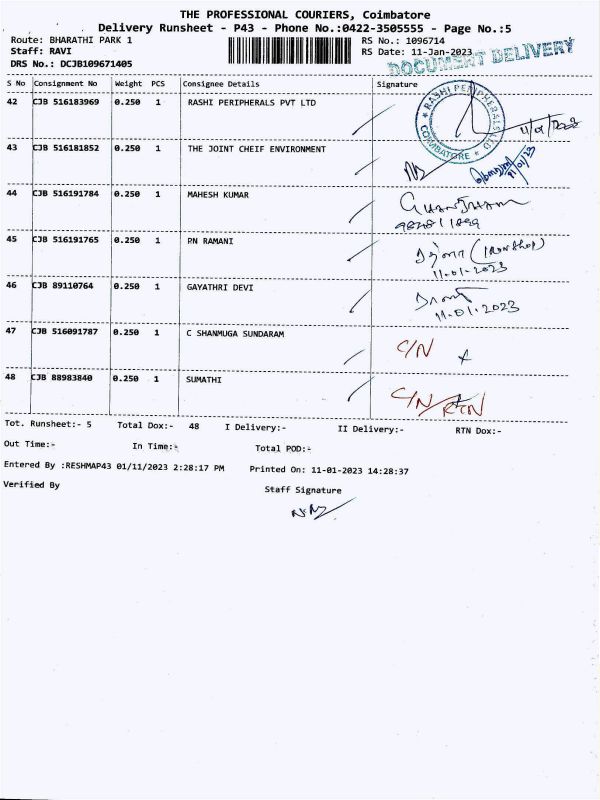 THE PROFESSIONAL COURIERS, Coimbatore
Delivery Runsheet - P43 - Phone No.:0422-3505555 - Page No.:5
Route: BHARATHI PARK 1 RS No.: 1096714
Staff: RAVI RS Date: 11-Jan-2023
DRS No.: DCJB109671405
DOCUMENT DELIVERY
S No Consignment No Weight PCS Consignee Details Signature
42 CJB 516183969 0.250 1 RASHI PERIPHERALS PVT LTD
RASHI PERIPHERALS LTD COIMBATORE
11/01/2023
43 CJB 516181852 0.250 1 THE JOINT CHEIF ENVIRONMENT
11/01/23
44 CJB 516191784 0.250 1 MAHESH KUMAR
45 CJB 516191765 0.250 1 PN RAMANI
11-01-2023
46 CJB 89110764 0.250 1 GAYATHRI DEVI
11.01.2023
47 CJB 516091787 0.250 1 C SHANMUGA SUNDARAM C/N
48 CJB 88983840 0.250 1 SUMATHI C/N RTN
Tot. Runsheet:- 5 Total Dox:- 48 I Delivery:- II Delivery:- RTN Dox:-
Out Time:- In Time:- Total POD:-
Entered By :RESHMAP43 01/11/2023 2:28:17 PM Printed On: 11-01-2023 14:28:37
Verified By Staff Signature